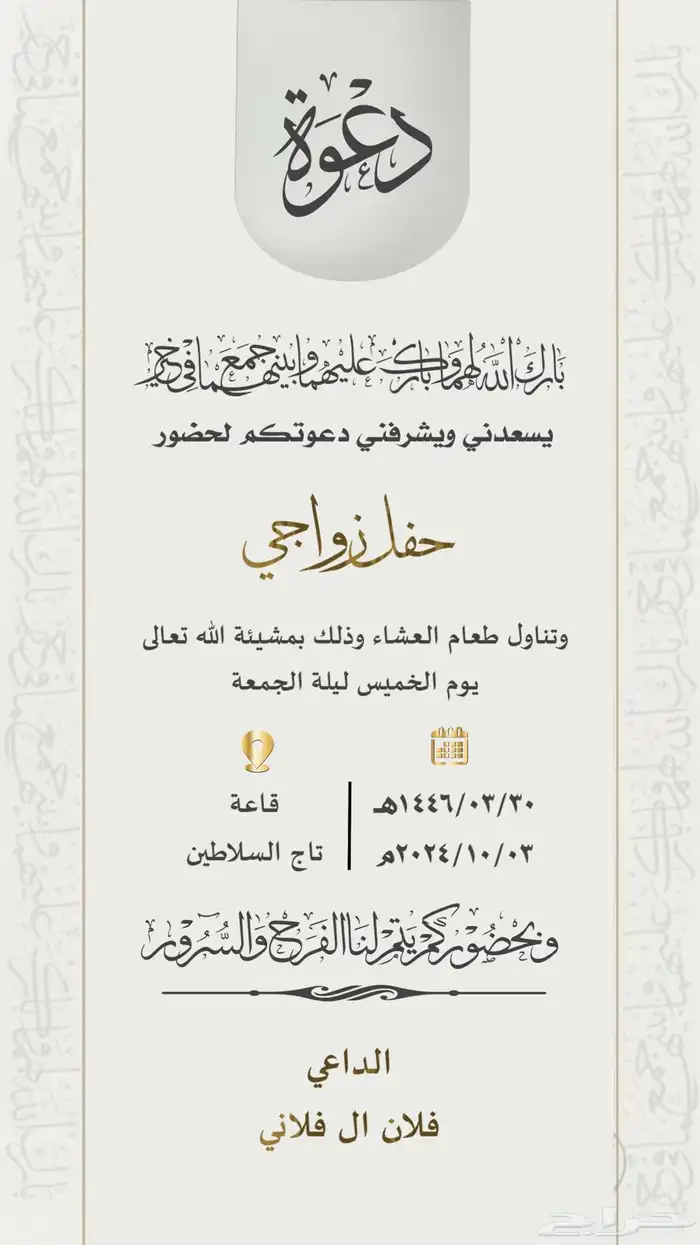 دعوة
بارك الله لهما وبارك عليهما وجمع بينهما في خير
يسعدني ويشرفني دعوتكم لحضور
حفل زواجي
وتناول طعام العشاء وذلك بمشيئة الله تعالى
يوم الخميس ليلة الجمعة
١٤٤٦/٠٣/٣٠هـ
٢٠٢٤/١٠/٠٣م
قاعة
تاج السلاطين
وبحضوركم يتم لنا الفرح والسرور
الداعي
فلان ال فلاني
حراج